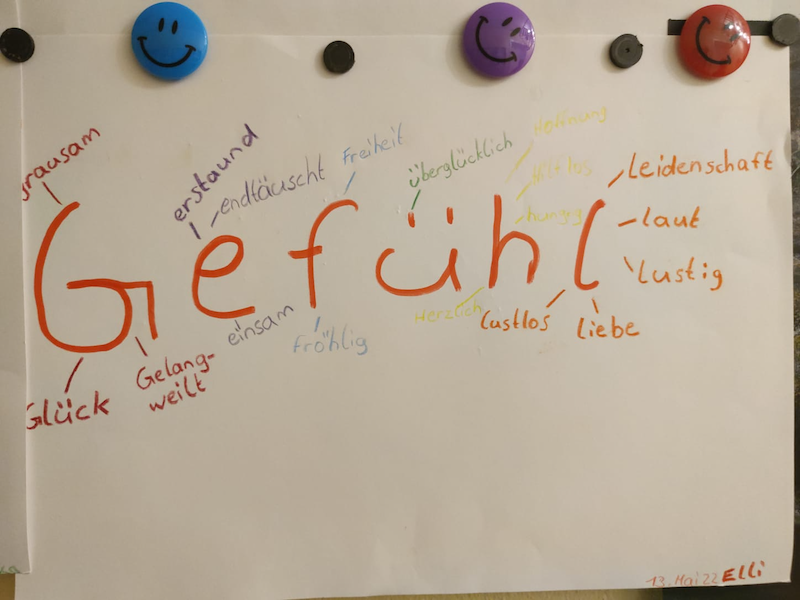 rausam
erstaund
endtäuscht
Freiheit
überglücklich
Hoffnung
Hilflos
hungrig
Leidenschaft
laut
lustig
Gefühl
Glück
Gelang-
weilt
einsam
Fröhlig
Herzlich
Lustlos
Liebe
13. Mai 22 Elli